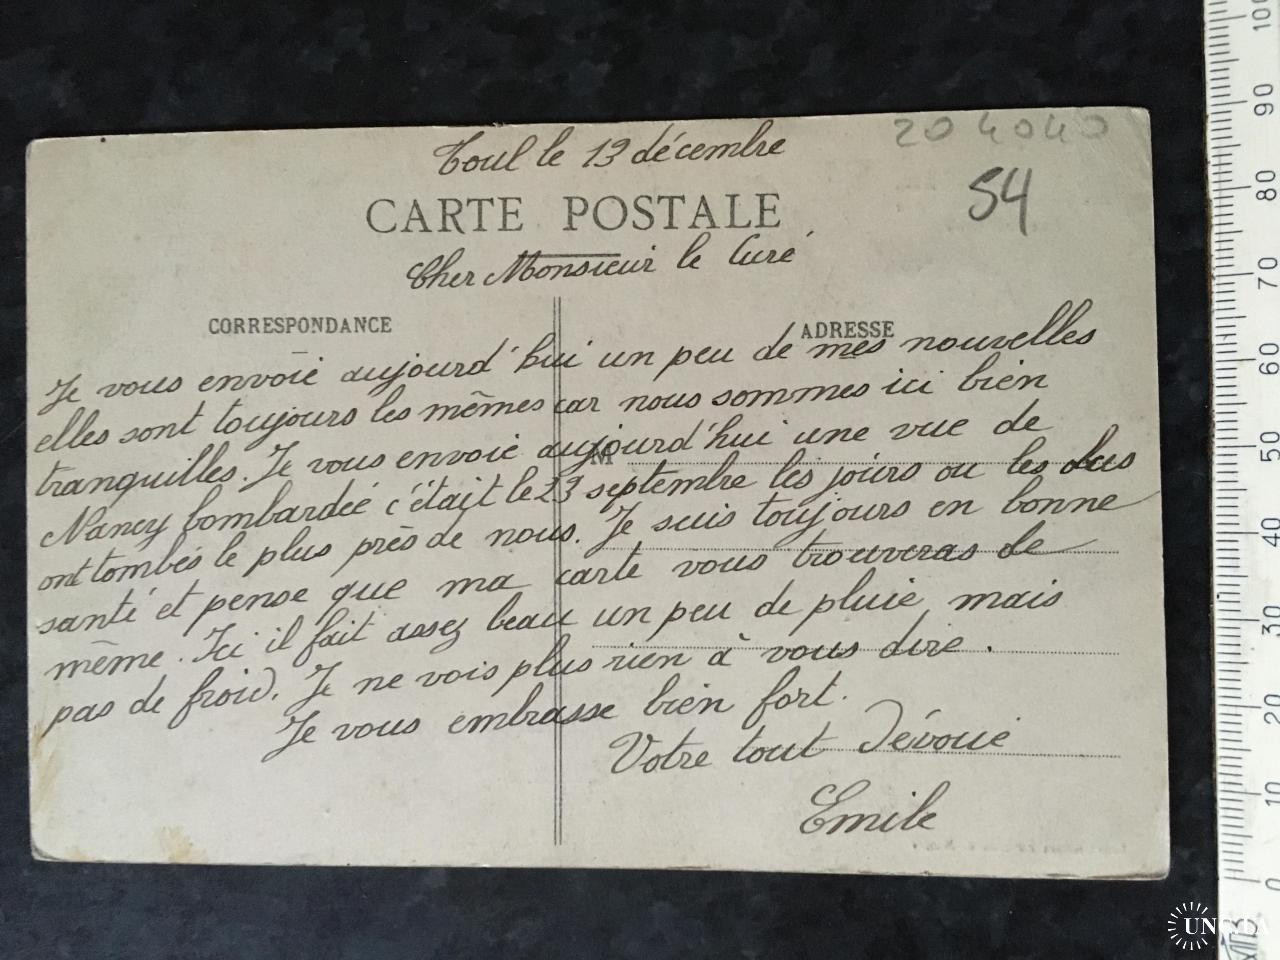 204040
Toul le 13 décembre
54
CARTE POSTALE
Cher Monsieur le Curé
CORRESPONDANCE
ADRESSE
Je vous envoie aujourd'hui un peu de mes nouvelles
elles sont toujours les mêmes car nous sommes ici bien
tranquilles. Je vous envoie aujourd'hui une vue de
M
Nancy bombardée c'était le 23 septembre les jours ou les
ont tombés le plus près de nous. Je suis toujours en bonne
santé et pense que ma carte vous trouveras de
même. Ici il fait assez beau un peu de pluie, mais
pas de froid. Je ne vois plus rien à vous dire.
Je vous embrasse bien fort.
Votre tout dévoué
Emile
100
90
80
70
60
50
40
30
20
10
0